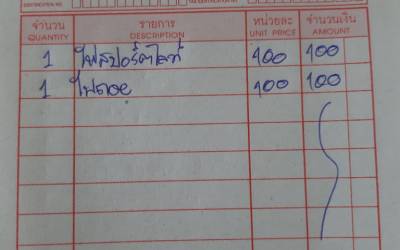 จำนวน รายการ หน่วยละ จำนวนเงิน
QUANTITY DESCRIPTION UNIT PRICE AMOUNT
1 ไฟสปอร์ตไลท์ 400 400
1 100 100